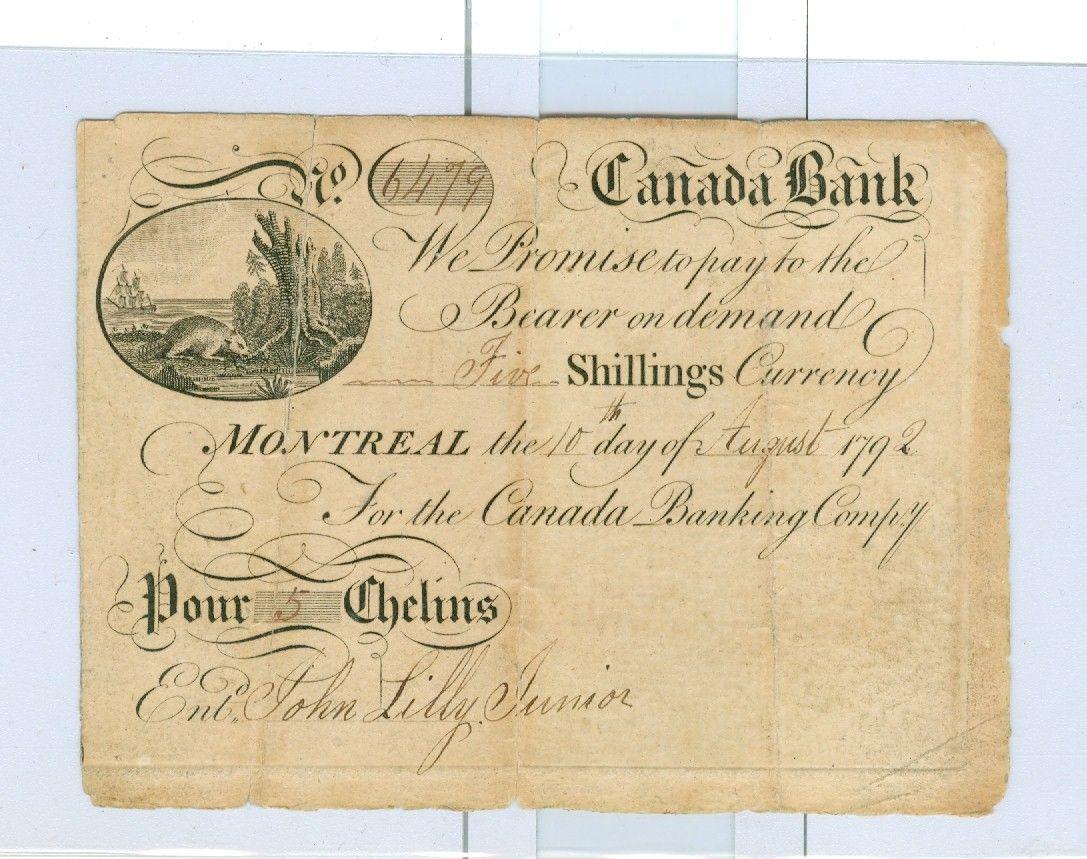 No. 6479 Canada Bank
We Promise to pay to the
Bearer on demand
Five Shillings Currency
MONTREAL the 10th day of August 1792
For the Canada Banking Compy
Pour 5 Chelins
Entd. John Lilly Junior